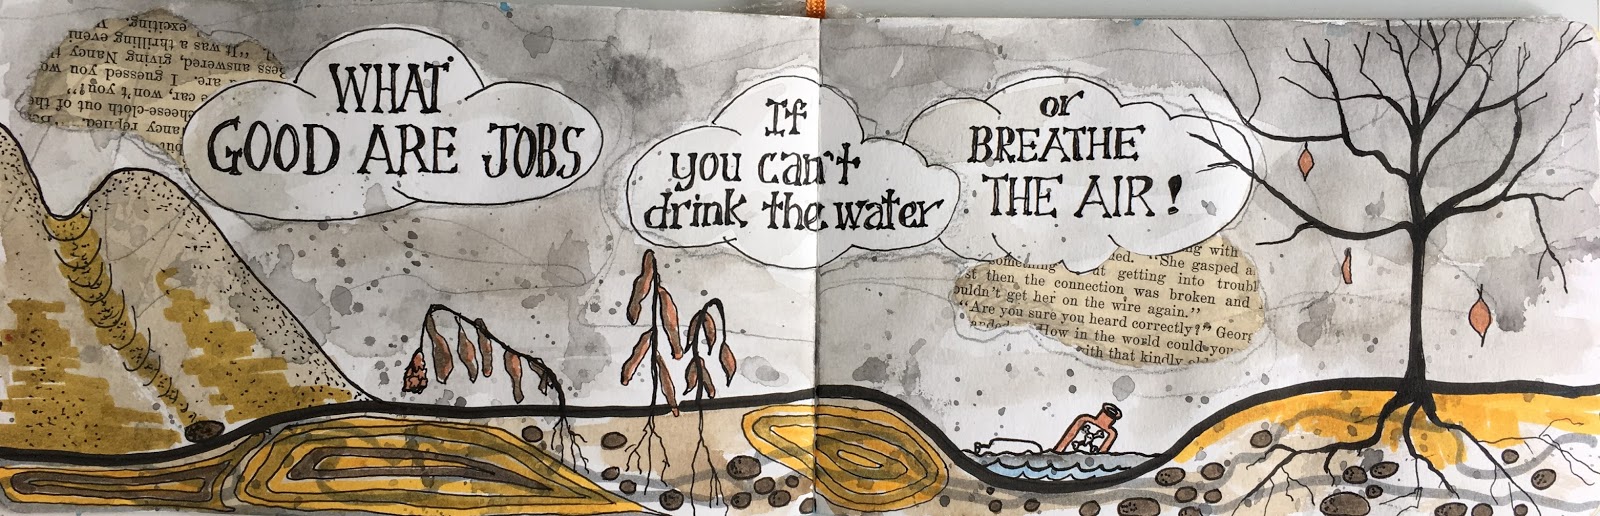 WHAT
GOOD ARE JOBS
If
you can't
drink the water
or
BREATHE
THE AIR!
Nancy replied.
cheese-cloth out of the
car, won't you?"
are. I guessed you wo
Bess answered, giving Nancy t
"It was a thrilling eveni
exciting.
ng with
ed. "She gasped a
something at getting into troubl
st then the connection was broken and
ouldn't get her on the wire again."
"Are you sure you heard correctly?" Georg
"How in the world could you
with that kindly